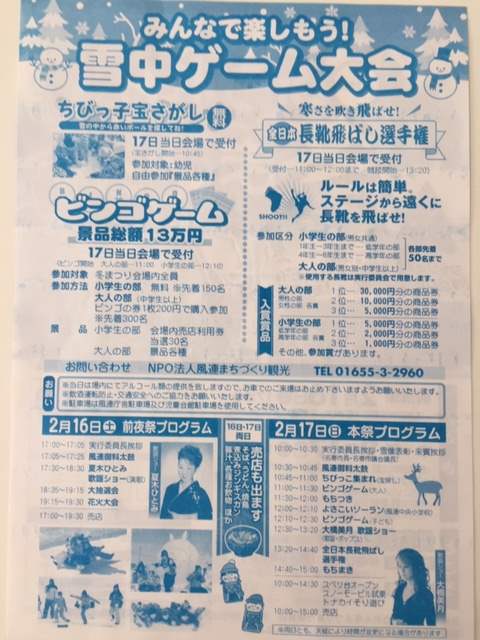 みんなで楽しもう!
雪中ゲーム大会
ちびっ子宝さがし 無料
雪の中から赤いボールを探してね!
17日当日会場で受付
(宝さがし開始…10:45)
参加対象:幼児
自由参加『景品各種』
ビンゴゲーム
景品総額13万円
17日当日会場で受付
(ビンゴ開始 大人の部…11:00 小学生の部…12:10)
参加対象 冬まつり会場内全員
参加方法 小学生の部 無料 ※先着150名
大人の部(中学生以上)
ビンゴの券1枚200円で購入参加
※先着300名
景品 小学生の部 会場内売店利用券
当選30名
大人の部 景品各種
寒さを吹き飛ばせ!
全日本長靴飛ばし選手権
17日当日会場で受付
(受付…11:00~12:00まで 競技開始…13:20)
SHOOT!!
ルールは簡単。
ステージから遠くに
長靴を飛ばせ!
参加区分 小学生の部(男女共通)
1年生~3年生まで…低学年の部
4年生~6年生まで…高学年の部
大人の部(男女別・中学生以上)
各部先着
50名まで
※使用する長靴は実行委員会で用意します。
入賞賞品
大人の部
男性の部
女性の部 各賞
1位… 30,000円分の商品券
2位… 10,000円分の商品券
3位… 5,000円分の商品券
小学生の部
低学年の部
高学年の部 各賞
1位… 5,000円分の商品券
2位… 2,000円分の商品券
3位… 1,000円分の商品券
その他、参加賞があります。
お問い合わせ NPO法人風連まちづくり観光 TEL 01655-3-2960
お願い
※当日は場内にてアルコール類の提供を致しますので、お車でのご来場はお止め下さいますようお願いいたします。
※飲酒運転防止・交通安全へのご協力をお願いいたします。
※駐車場は風連庁舎駐車場及び児童会館駐車場を使用してください。
2月16日(土) 前夜祭プログラム
17:00~17:05 実行委員長挨拶
17:05~17:25 風連御料太鼓
17:30~18:30 夏木ひとみ
歌謡ショー(演歌)
18:35~19:15 大抽選会
19:15~19:30 花火大会
17:00~19:30 売店
夏木ひとみ
16日・17日
両日
売店も出ます
そば、うどん、焼鳥、
煮込みジンギスカン、
豚汁、各種お飲物 ほか
2月17日(日) 本祭プログラム
10:00~10:30 実行委員長挨拶・雪像表彰・来賓挨拶
(名寄市長・名寄市議会議長)
10:30~10:45 風連御料太鼓
10:45~11:00 ちびっこ集まれ(宝探し)
11:00~11:30 ビンゴゲーム(大人)
11:30~12:00 もちつき
12:00~12:10 よさこいソーラン(風連中央小学校)
12:10~12:30 ビンゴゲーム(子ども)
12:30~13:20 大橋美月 歌謡ショー
(歌謡・ポップス)
13:20~14:40 全日本長靴飛ばし
選手権
14:40~14:50 もちまき
10:00~14:30 スベリ台オープン
スノーモービル試乗
トナカイそり遊び
10:00~15:00 売店
大橋美月
※両日とも、天候により時間が変更になる場合があります。